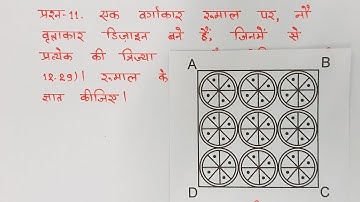 प्रश्न-11. एक वर्गाकार रूमाल पर, नौ
वृत्ताकार डिज़ाइन बने हैं, जिनमें से
प्रत्येक की त्रिज्या
12.29)। रूमाल के
ज्ञात कीजिए।
A
B
D
C